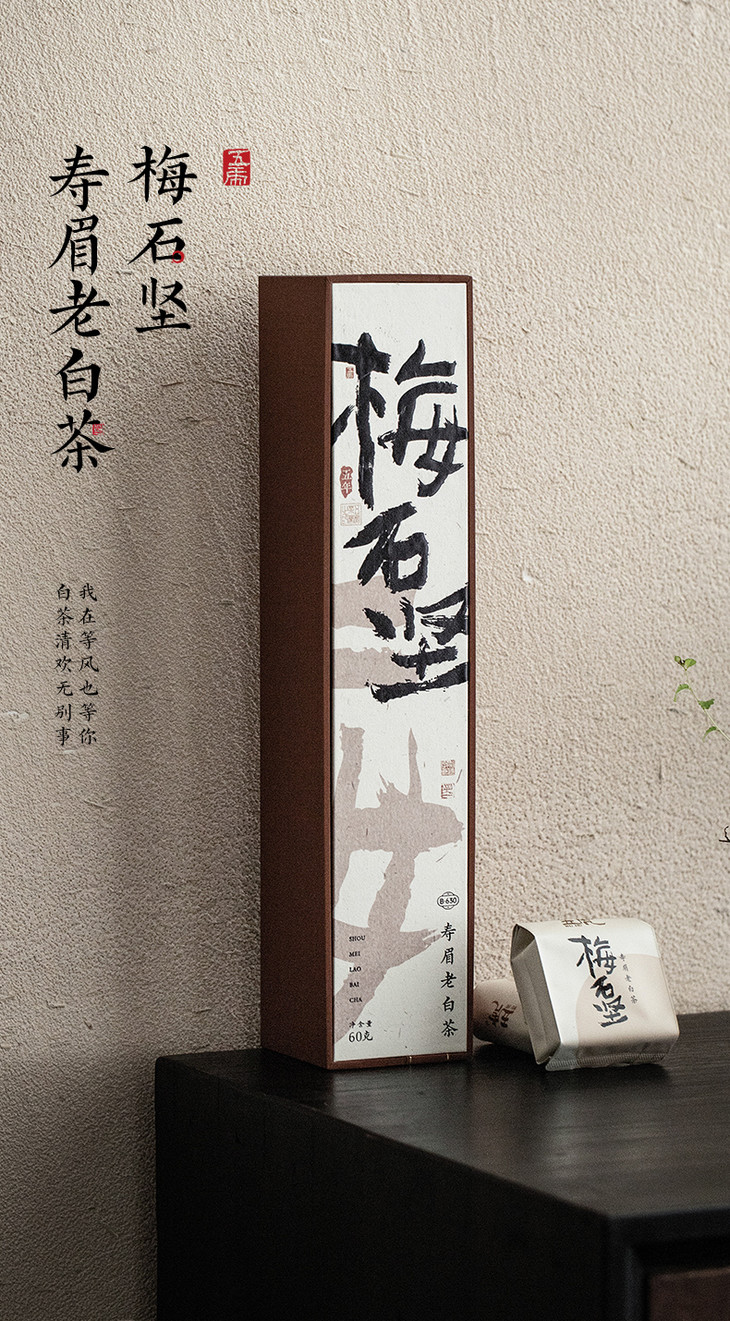 梅石坚
寿眉老白茶
我在等风也等你
白茶清欢无别事
梅石坚
五年
B·630
寿眉老白茶
SHOU
MEI
LAO
BAI
CHA
净含量
60克
梅石坚
寿眉老白茶